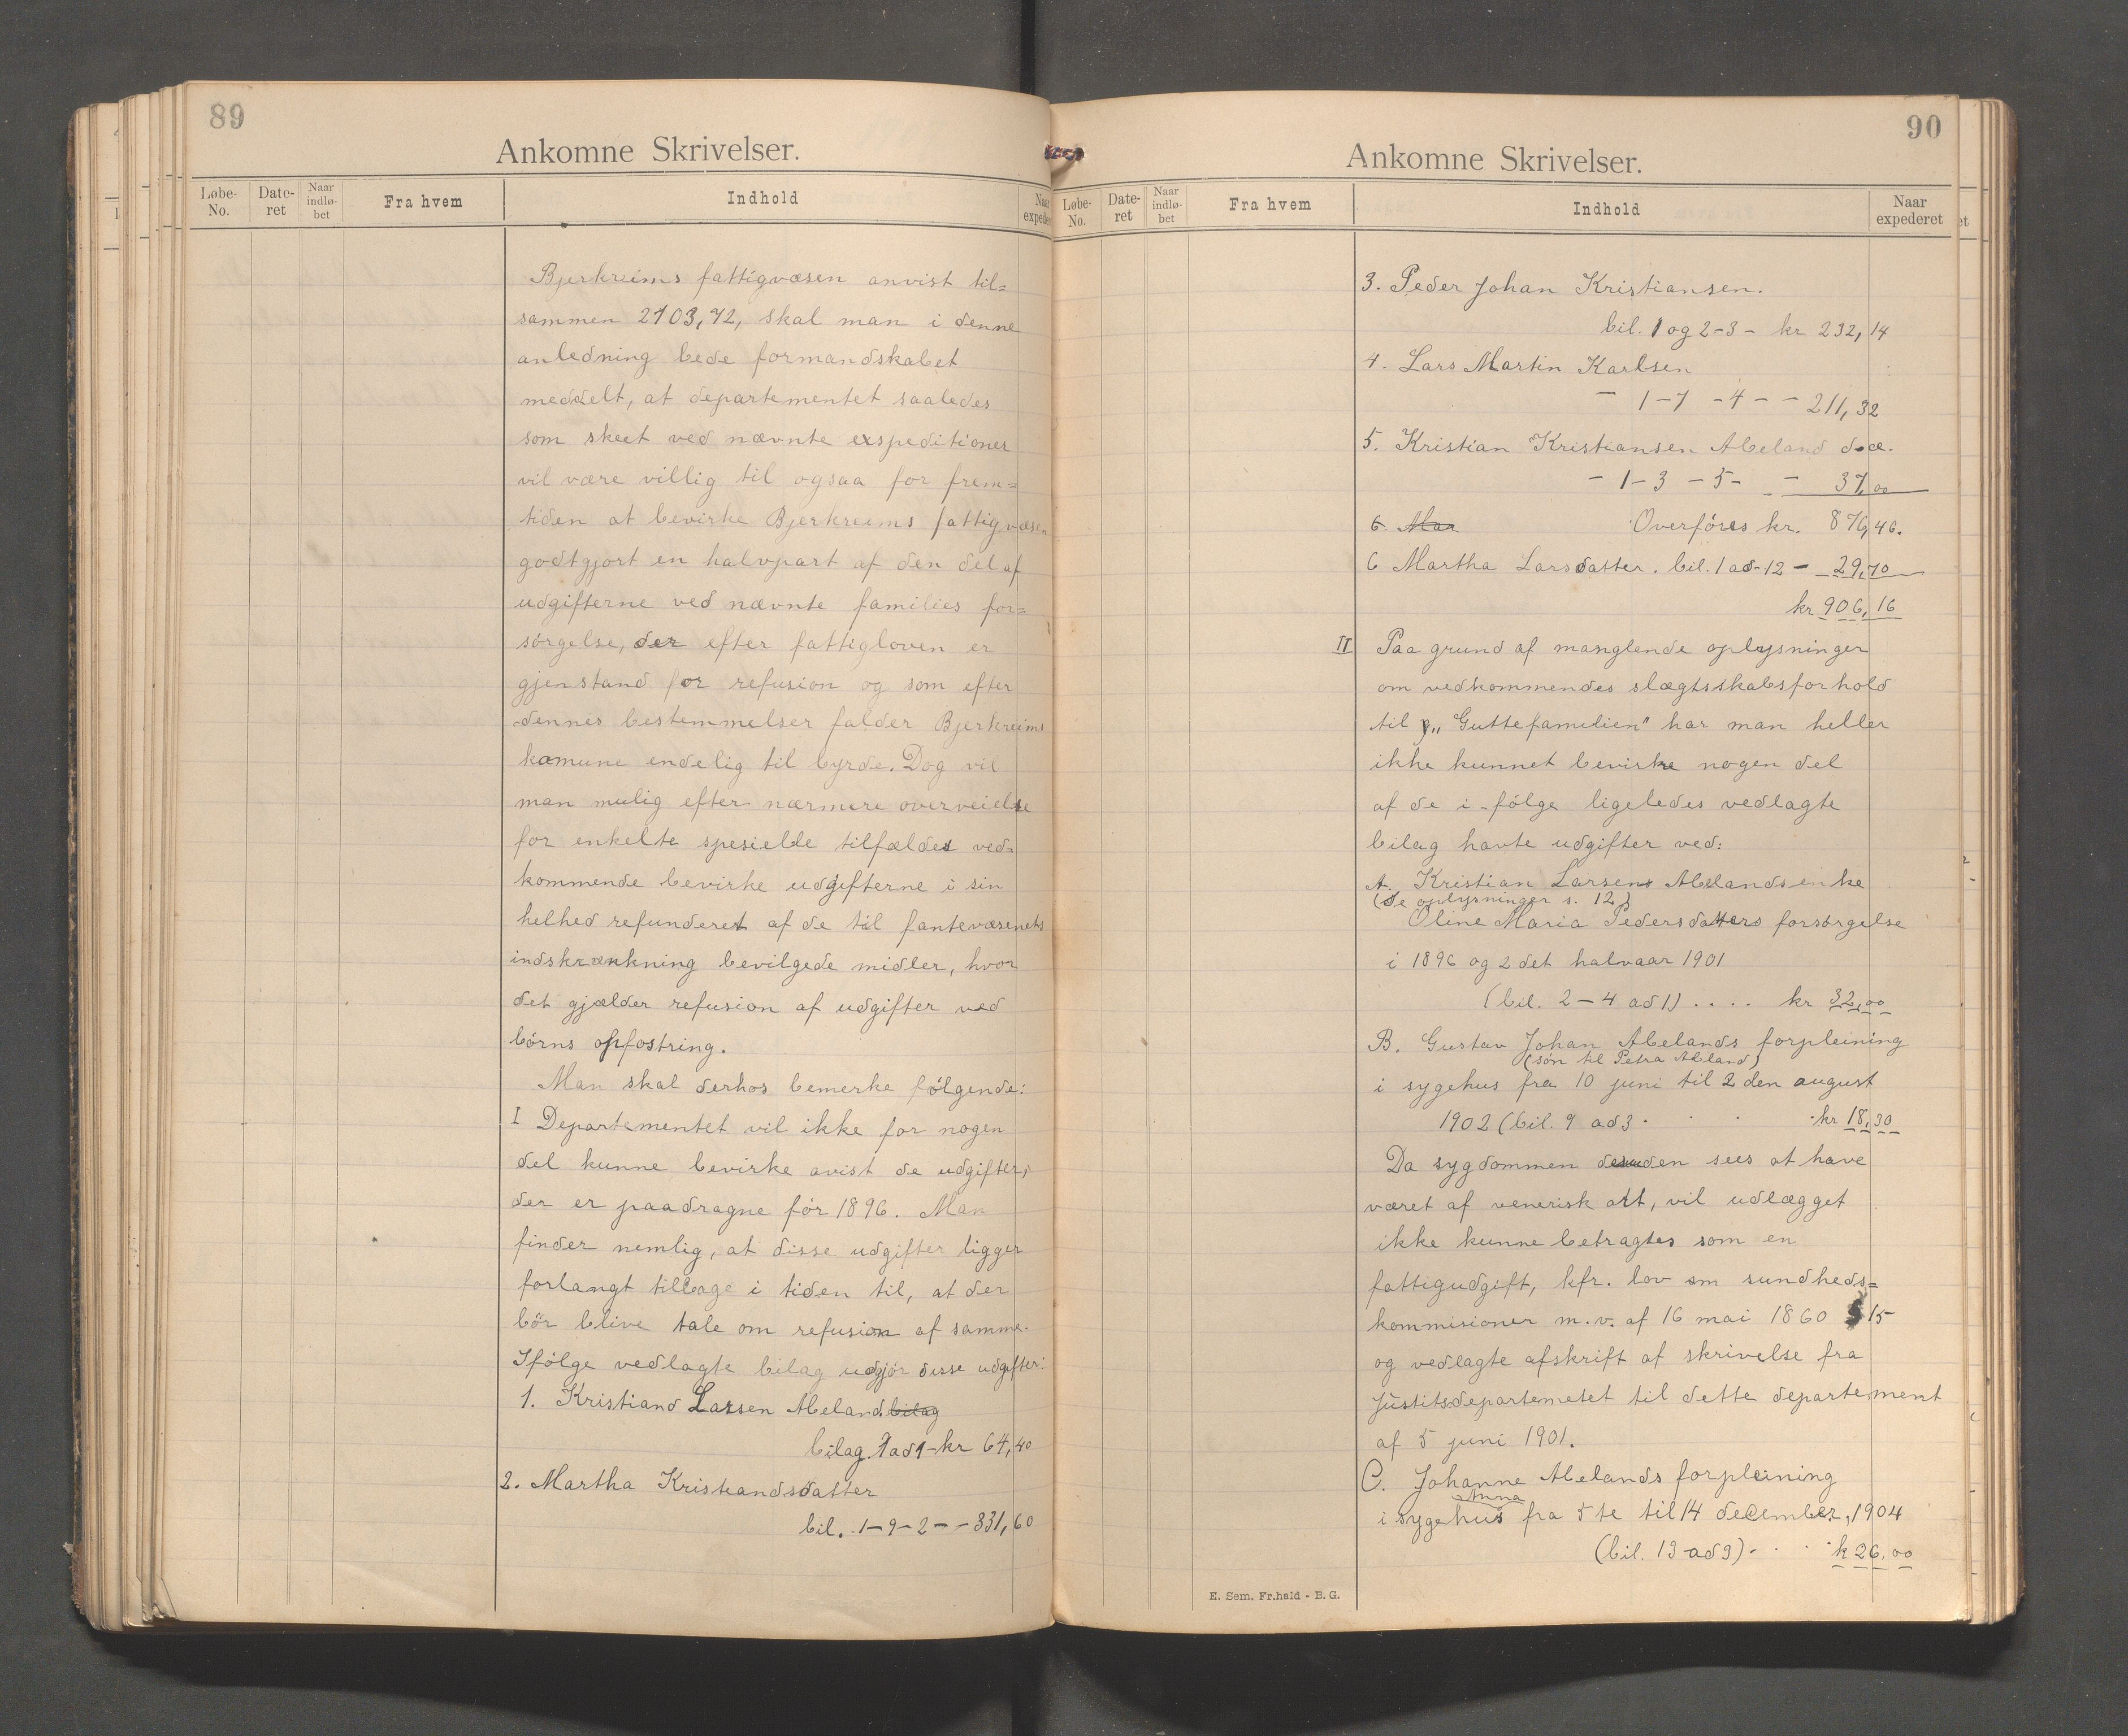 89
Ankomne Skrivelser.
Løbe-No. Date-ret Naar indlø-bet Fra hvem Indhold Naar expederet
Bjerkreims fattigvæsen anvist til=
sammen 2703,72, skal man i denne
anledning bede formandskabet
meddelt, at departementet saaledes
som skeet ved nævnte exspeditioner
vil være villig til ogsaa for frem=
tiden at bevirke Bjerkreims fattigvæsen
godtgjort en halvpart af den del af
udgifterne ved nævnte families for=
sørgelse, der efter fattigloven er
gjenstand for refusion og som efter
dennes bestemmelser falder Bjerkreims
komune endelig til byrde. Dog vil
man mulig efter nærmere overveielse
for enkelte spesielle tilfældes ved=
kommende bevirke udgifterne i sin
helhed refunderet af de til fantevæsenets
indskrænkning bevilgede midler, hvor
det gjælder refusion af udgifter ved
børns opfostring.
Man skal derhos bemerke følgende:
I Departementet vil ikke for nogen
del kunne bevirke avist de udgifter,
der er paadragne før 1896. Man
finder nemlig, at disse udgifter ligger
forlangt tilbage i tiden til, at der
bør blive tale om refusion af samme.
Ifølge vedlagte bilag udgjør disse udgifter:
1. Kristiand Larsen Abeland. bilag
bilag. 1 ad 1 - kr 64,40
2. Martha Kristiandsdatter
bil. 1-9-2 - - 331,60
90
Ankomne Skrivelser.
Løbe-No. Date-ret Naar indlø-bet Fra hvem Indhold Naar expederet
3. Peder Johan Kristiansen.
bil. 1 og 2-3 - kr 232,14
4. Lars Martin Karlsen
- 1-7 -4 - - 211,32
5. Kristian Kristiansen Abeland d.æ.
- 1-3 -5- - 37,00
6. Mar Overføres kr. 876,46.
6 Martha Larsdatter. bil. 1 ad-12 - 29,70
kr 906,16
II Paa grund af manglende oplysninger
om vedkommendes slægtsskabsforhold
til "Guttefamilien" har man heller
ikke kunnet bevirke nogen del
af de i-følge ligeledes vedlagte
bilag havte udgifter ved:
A. Kristian Larsens Abelands enke
(se oplysninger s. 12)
Oline Maria Pedersdatters forsørgelse
i 1896 og 2 det halvaar 1901
(bil. 2-4 ad 1) .... kr 32,00
B. Gustav Johan Abelands forpleining
(søn til Petra Abeland)
i sygehus fra 10 juni til 2 den august
1902 (bil. 9 ad 3 . . . . kr 18,30
Da sygdommen desuden sees at have
været af venerisk art, vil udlægget
ikke kunne betragtes som en
fattigudgift, kfr. lov om sundheds=
kommisioner m.v. af 16 mai 1860 § 15
og vedlagte afskrift af skrivelse fra
Justitsdepartemetet til dette departement
af 5 juni 1901.
C. Johanne Abelands forpleining
Anna
i sygehus fra 5te til 14 december, 1904
(bil. 13 ad 3) - . . . k 26,00
E. Sem. Fr.hald - B. G.